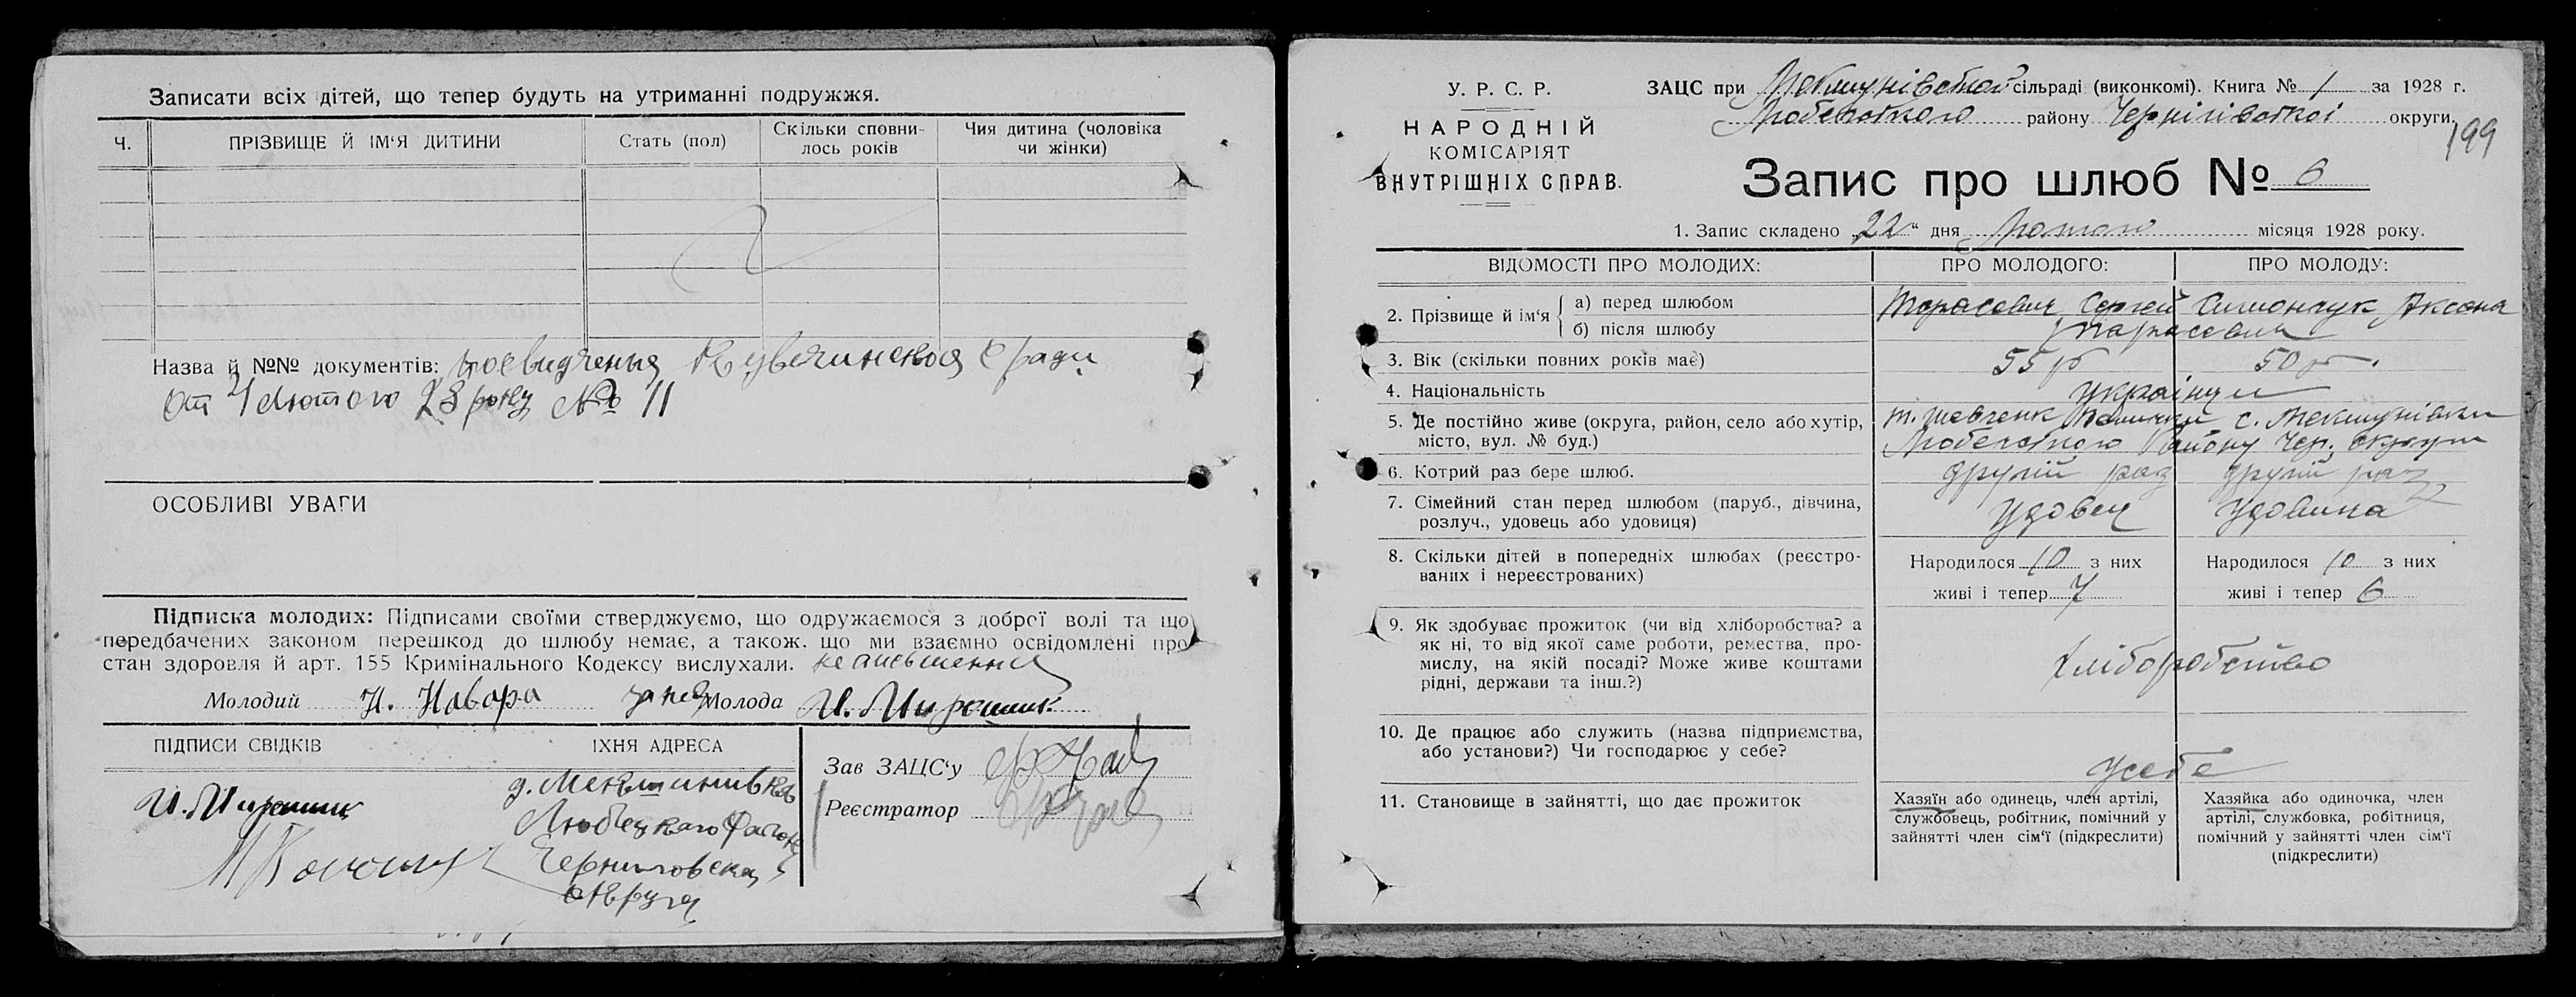 Записати всіх дітей, що тепер будуть на утриманні подружжя.
Ч. ПРІЗВИЩЕ Й ІМ'Я ДИТИНИ Стать (пол) Скільки сповни-лось років Чия дитина (чоловіка чи жінки)
Назва й №№ документів: посвидченья Кувечинськоя с ради
от 4 Лютого 28 року № 11
ОСОБЛИВІ УВАГИ
Підписка молодих: Підписами своїми стверджуємо, що одружаємося з доброї волі та що
передбачених законом перешкод до шлюбу немає, а також, що ми взаємно освідомлені про
стан здоров'я й арт. 155 Кримінального Кодексу вислухали.
Молодий Н. Навора за нея Молода И. Мирошник
ПІДПИСИ СВІДКІВ ЇХНЯ АДРЕСА
И. Мирошник
Любецкого Района
Черниговская
округа
Зав ЗАЦС'у
Реєстратор
У. Р. С. Р.
НАРОДНІЙ
КОМІСАРІЯТ
ВНУТРІШНІХ СПРАВ.
ЗАЦС при сільраді (виконкомі). Книга № 1 за 1928 г.
Любецького району Чернігівської округи.
199
Запис про шлюб № 6
1. Запис складено „22“ дня Лютого місяця 1928 року.
ВІДОМОСТІ ПРО МОЛОДИХ: ПРО МОЛОДОГО: ПРО МОЛОДУ:
2. Прізвище й ім'я
а) перед шлюбом Тарасевич Сергей Симончук Аксена
б) після шлюбу Тарасевич
3. Вік (скільки повних років має) 55 р 50 р.
4. Національність Українци
5. Де постійно живе (округа, район, село або хутір,
місто, вул. № буд.)
Любецького Району Чер. Округи
6. Котрий раз бере шлюб. другій раз другій раз
7. Сімейний стан перед шлюбом (паруб., дівчина,
розлуч., удовець або удовиця) Удовец Удовица
8. Скільки дітей в попередніх шлюбах (реєстро-
ваних і нереєстрованих)
Народилося 10 з них
живі і тепер 7
Народилося 10 з них
живі і тепер 6
9. Як здобуває прожиток (чи від хліборобства? а
як ні, то від якої саме роботи, ремества, про-
мислу, на якій посаді? Може живе коштами
рідні, держави та інш.?)
хліборобство
10. Де працює або служить (назва підприємства,
або установи?) Чи господарює у себе?
усебе
11. Становище в зайнятті, що дає прожиток
Хазяїн або одинець, член артілі,
службовець, робітник, помічний у
зайнятті член сім'ї (підкреслити)
Хазяйка або одиночка, член
артілі, службовка, робітниця,
помічний у зайнятті член сім'ї
(підкреслити)